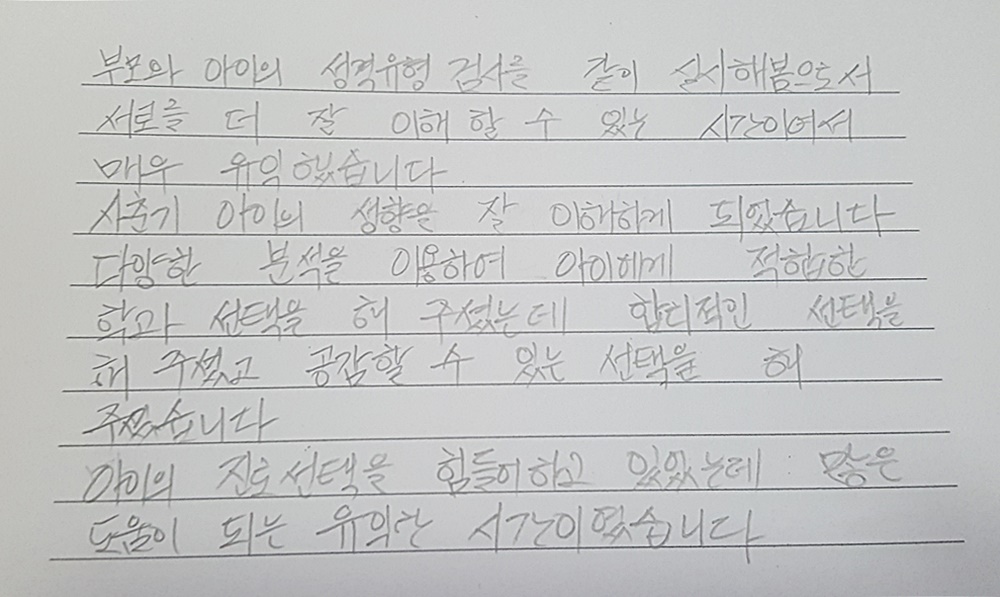 부모와 아이의 성격유형 검사를 같이 실시해봄으로서
서로를 더 잘 이해 할 수 있는 시간이어서
매우 유익했습니다
사춘기 아이의 성향을 잘 이해하게 되었습니다
다양한 분석을 이용하여 아이에게 적합한
학과 선택을 해 주셨는데 합리적인 선택을
해 주셨고 공감할 수 있는 선택을 해
주셨습니다
아이의 진로선택을 힘들어하고 있었는데 많은
도움이 되는 유익한 시간이였습니다